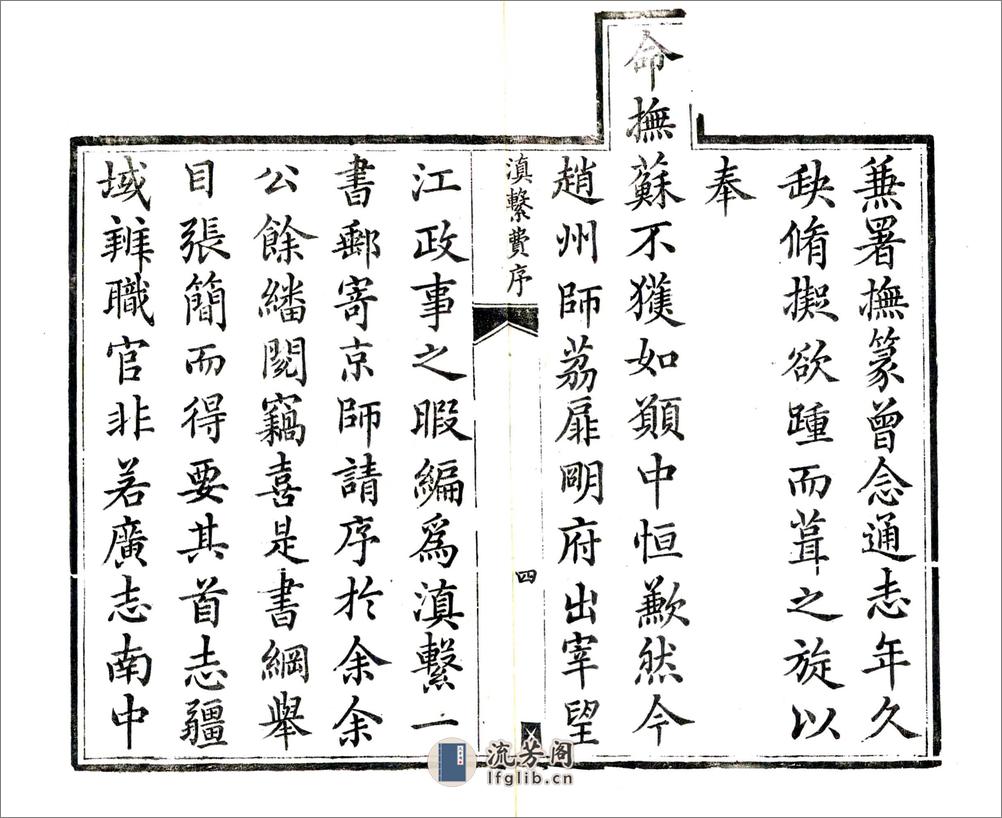 兼署撫篆曾念通志年久
缺脩擬欲踵而葺之旋以
奉
命撫蘇不獲如願中恒歉然今
趙州師荔扉明府出宰望
滇繫費序
四
江政事之暇編爲滇繫一
書郵寄京師請序於余余
公餘繙閱竊喜是書綱舉
目張簡而得要其首志疆
域辨職官非若廣志南中
流芳阁
lfglib.cn